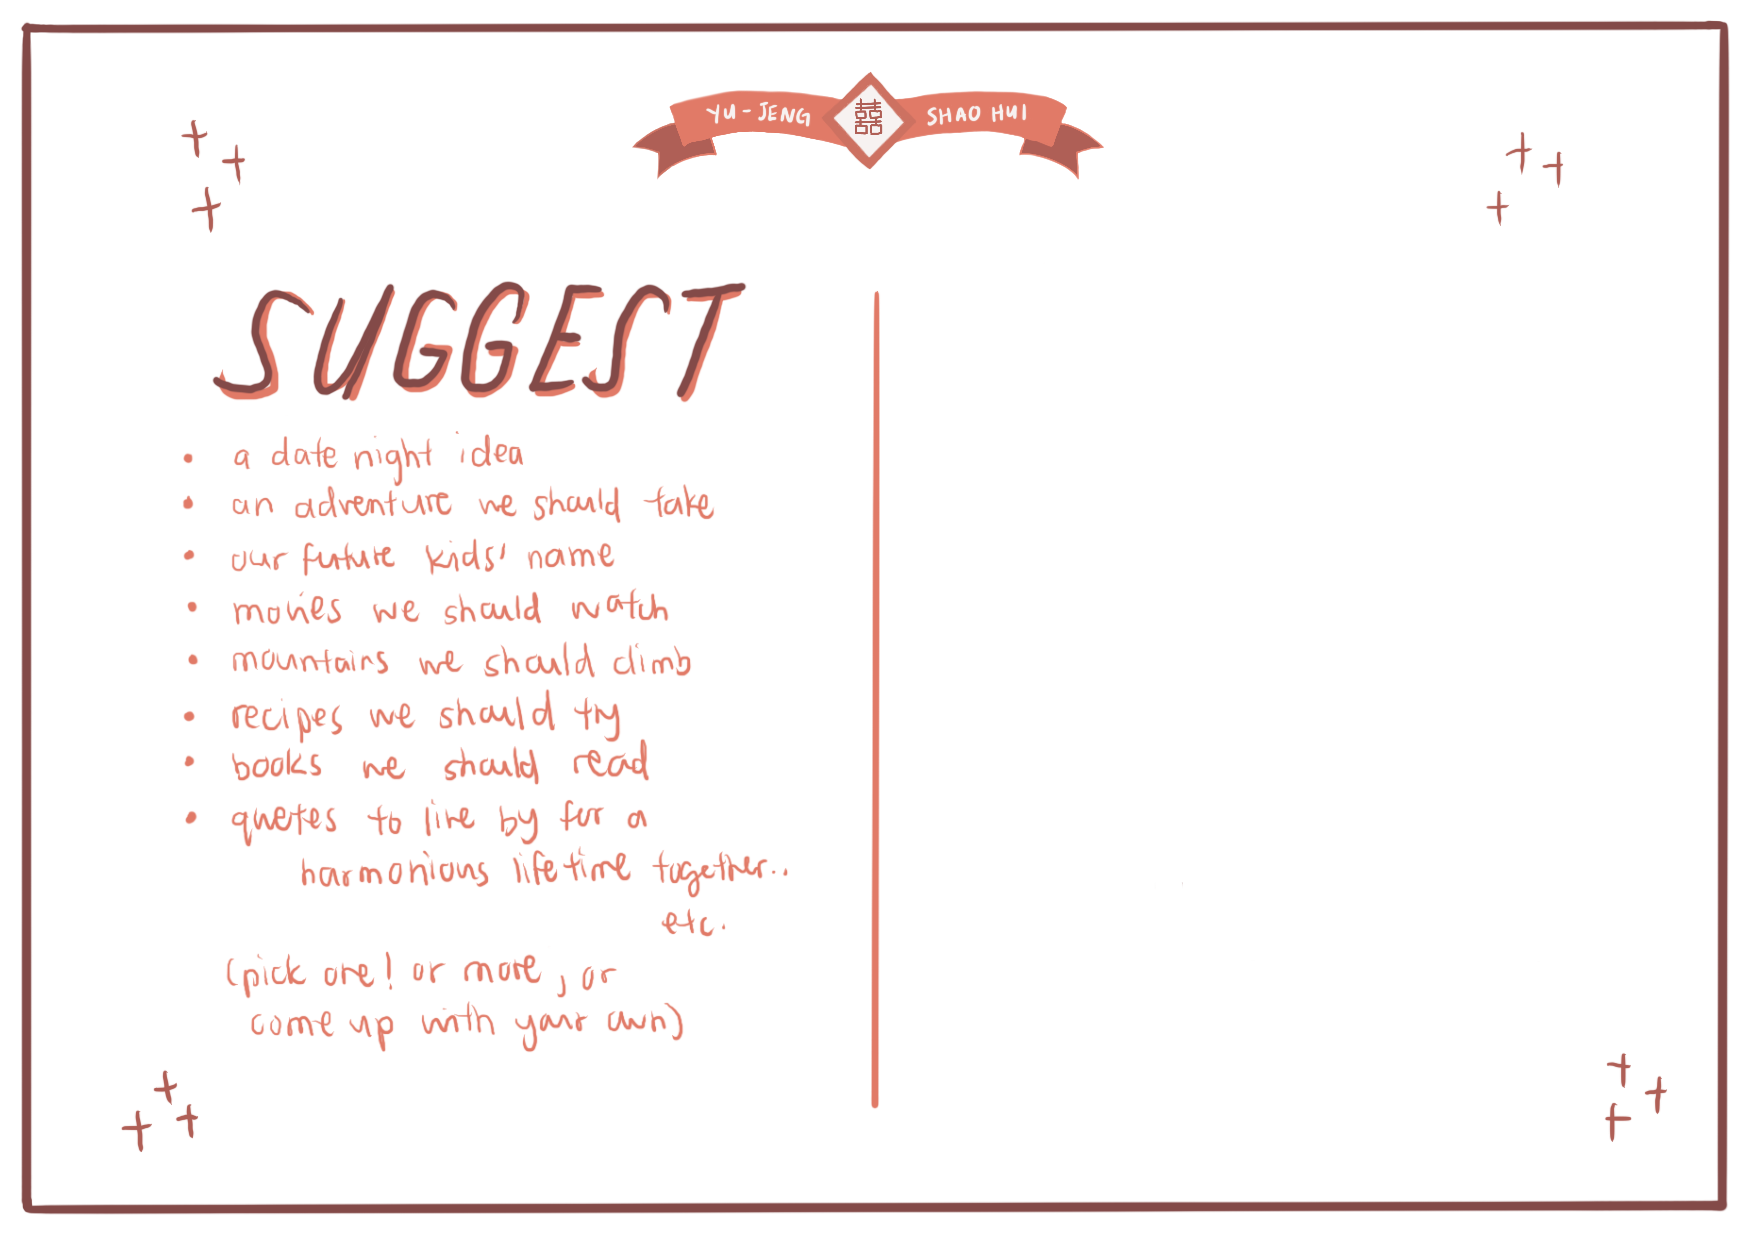 YU-JENG 囍 SHAO HUI
SUGGEST
• a date night idea
• an adventure we should take
• our future kids' name
• movies we should watch
• mountains we should climb
• recipes we should try
• books we should read
• quotes to live by for a
harmonious lifetime together..
etc.
(pick one! or more, or
come up with your own)